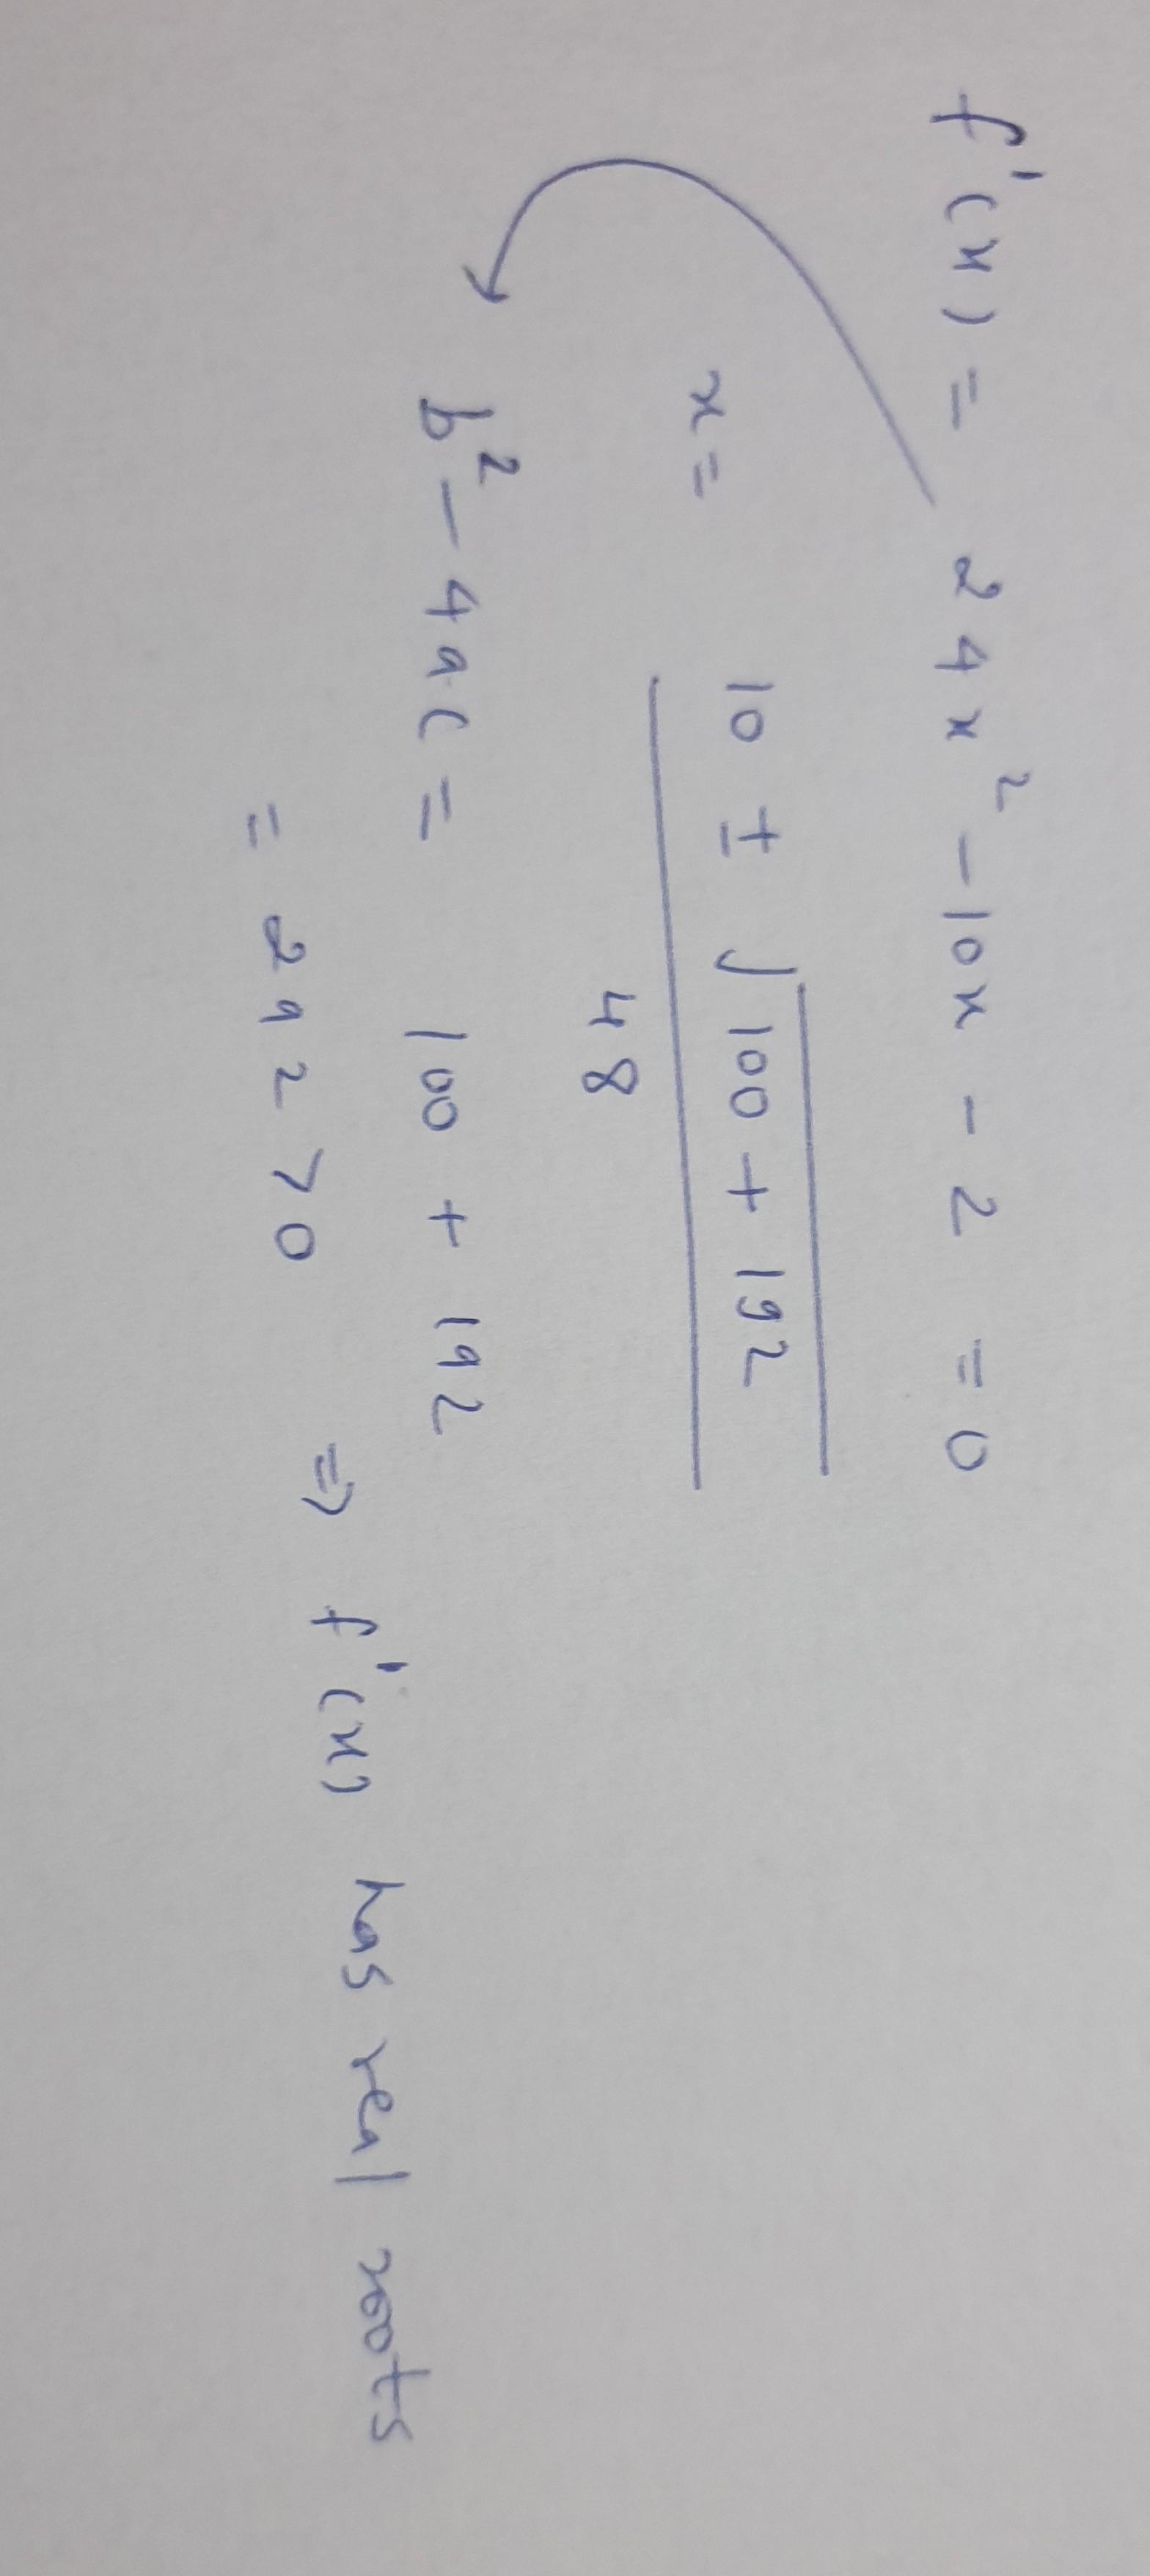 f'(x) = 24x² - 10x - 2 = 0
x = 10 ± √100 + 192
48
b² - 4ac = 100 + 192
= 292 > 0 ⇒ f'(x) has real roots